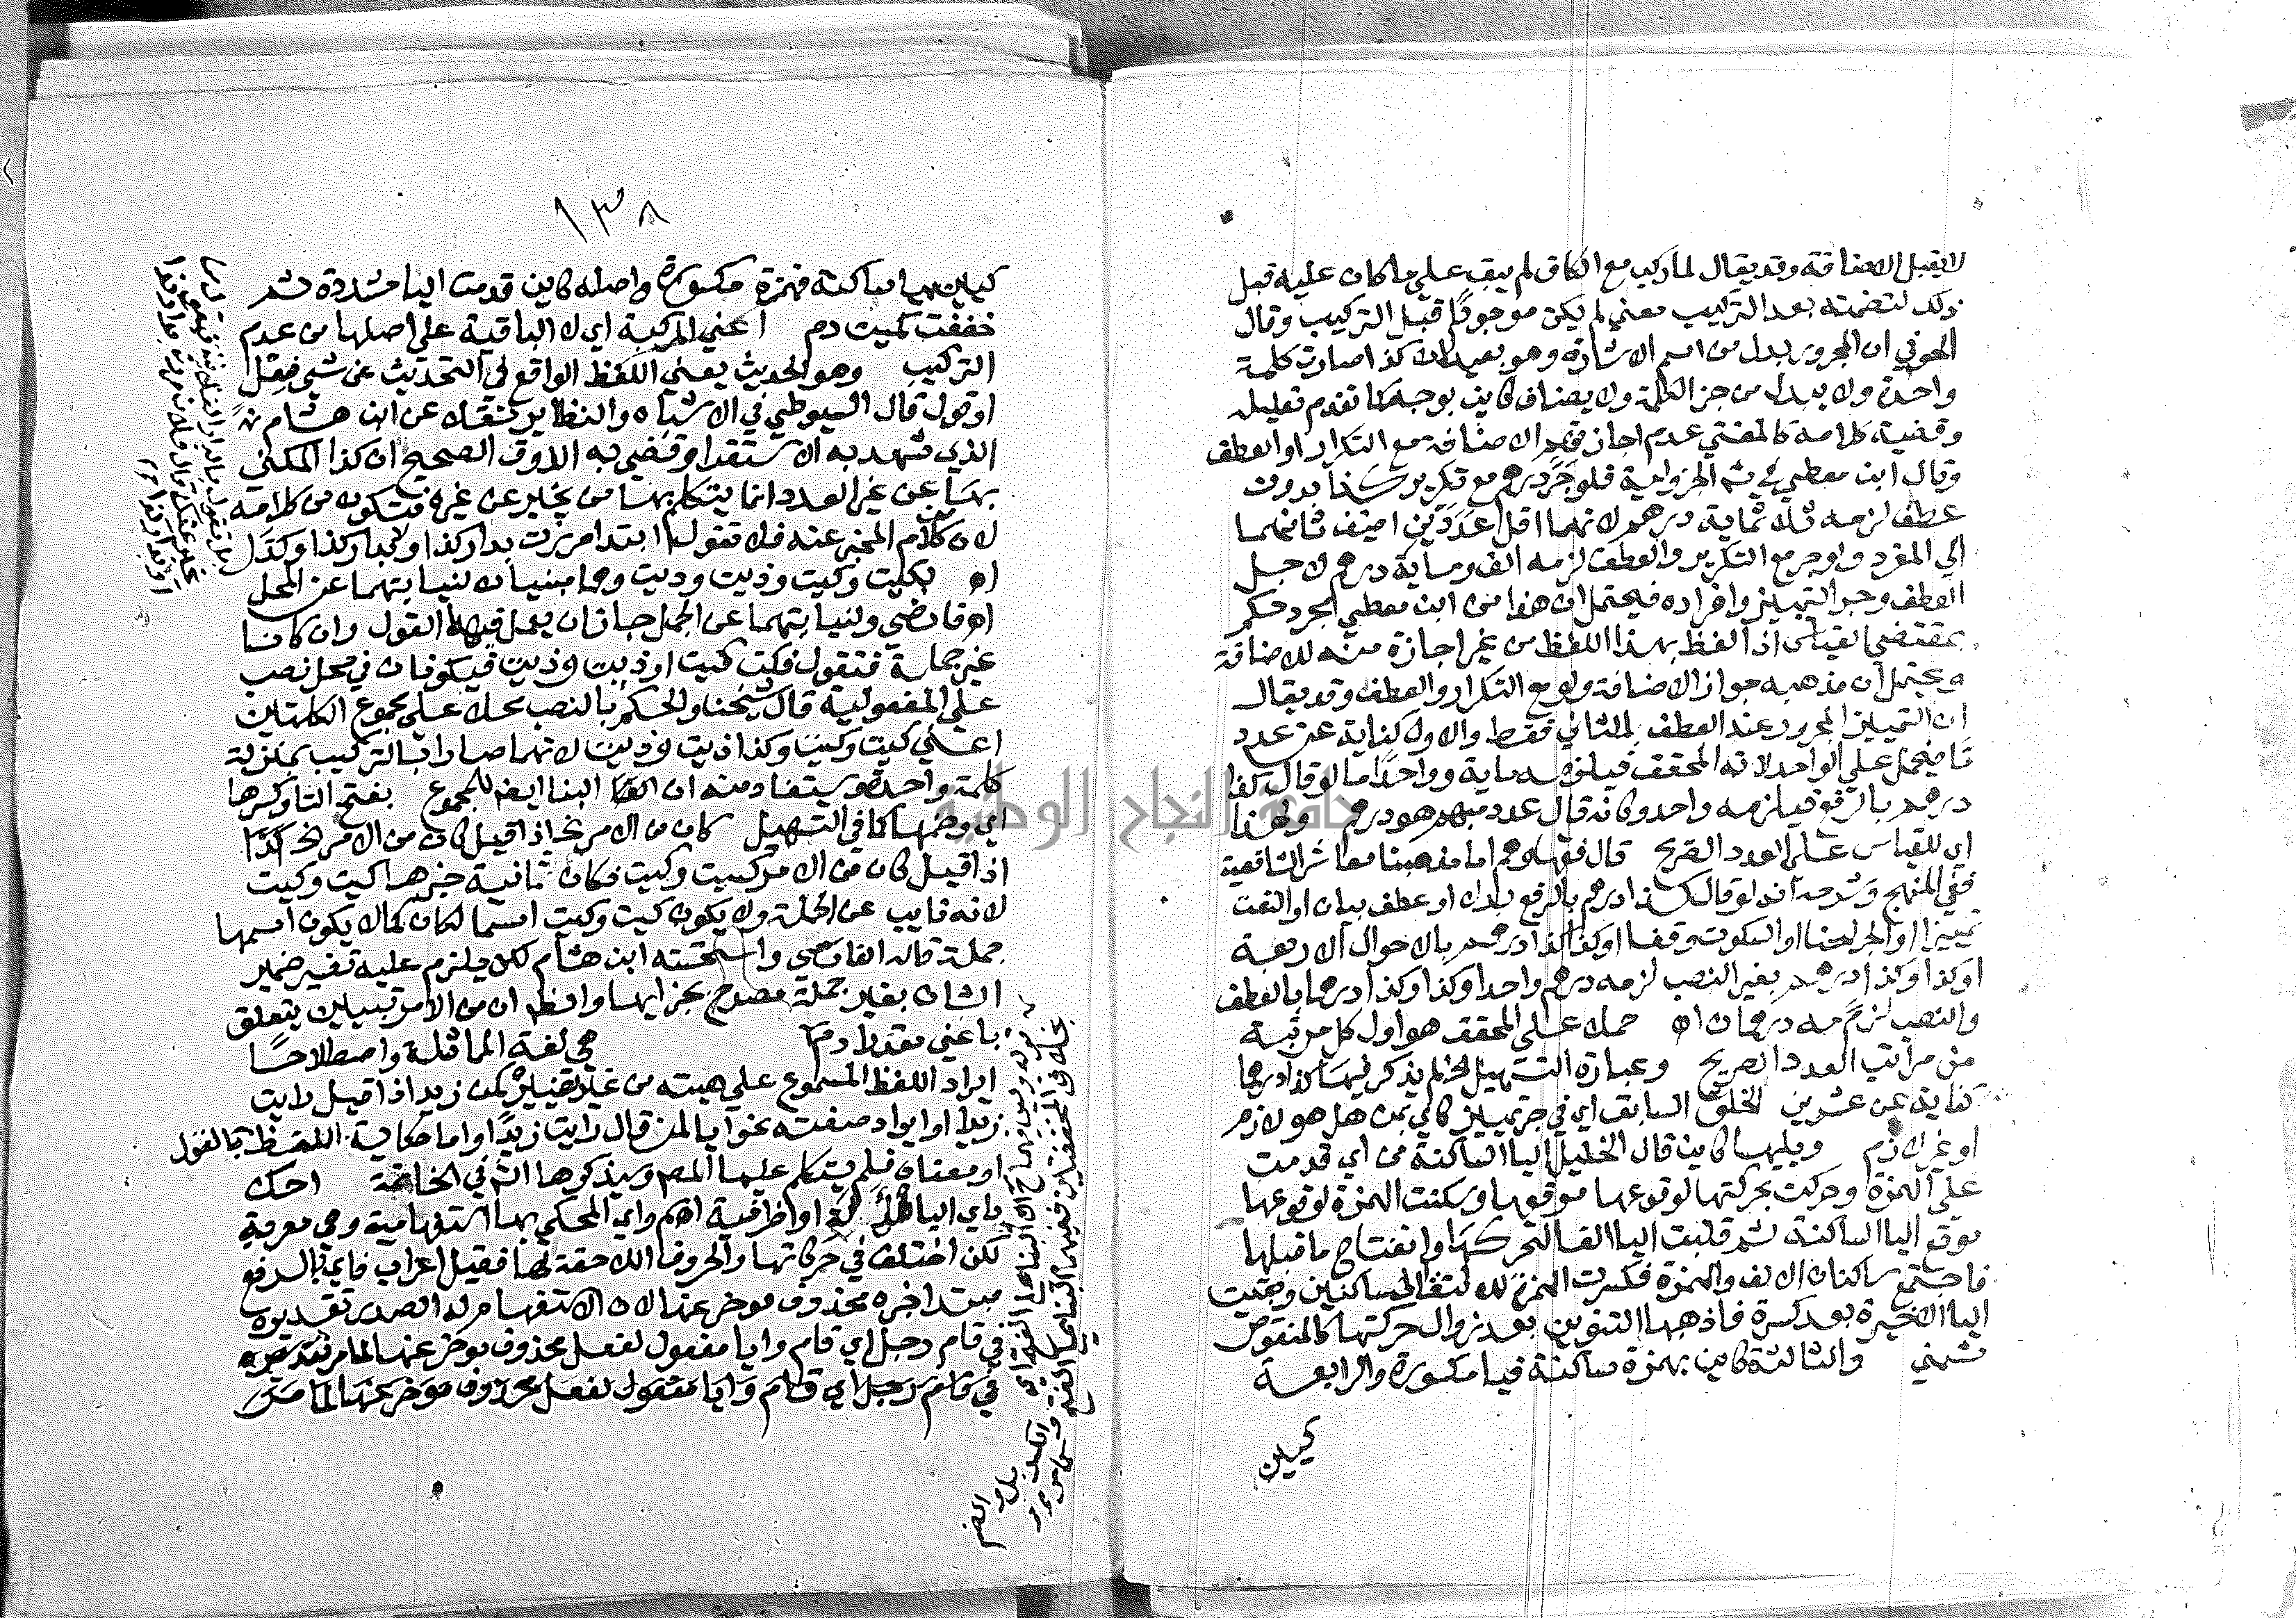 لا يقبل الاضافة وقد يقال لما ركب مع الكاف لم يبق علي ما كان عليه قبل
ذلك لتضمنه بعد التركيب معني لم يكن موجودًا قبل التركيب وقال
الحوفي ان المجرور بدل من اسم الاشارة وهو بعيد لان كذا صارت كلمة
واحدة ولا يبدل من جز الكلمة ولا يضاف كاين بوجه كما تقدم تعليله
وقضية كلامه كالمغني عدم اجازتهم الاضافة مع التكرار او العطف
وقال ابن معطي في شرح الجزولية فلو جر درهم مع تكرير كذا بدون
عطف لزمه ثلاثماية درهم لانهما اقل عددين اضيف ثانيهما
الي المفرد ولو جر مع التكرير والعطف لزمه الف وماية درهم لاجل
العطف وجر التمييز وافراده فيحتمل ان هذا من ابن معطي مجرد حكم
بمقتضي القياس اذا لفظ بهذا اللفظ من غير اجازة منه للاضافة
ويحتمل ان مذهبه جواز الاضافة ولو مع التكرار والعطف وقد يقال
ان التمييز المجرور عند العطف للثاني فقط والاول كناية عن عدد
ما فيحمل علي الواحد لانه المحقق فيلزمه ماية وواحد اما لو قال كذا
درهم بالرفع فيلزمه واحد وكانه قال عدد مبهم هو درهم ولهذا
اي للقياس علي العدد الصريح قال فقهاوهم اما مذهبنا معاشر الشافعية
ففي المنهج وشرحه انه لو قال كذا درهم بالرفع بدلا او عطف بيان او النصب
تمييزا او الجر لحنا او السكوت وقفا او كذا كذا درهم بالاحوال الاربعة
او كذا وكذا درهم بغير النصب لزمه درهم واحد او كذا وكذا درهما بالعطف
والنصب لزمه درهمان اه حمله علي المحقق هو اول كل مرتبة
من مراتب العدد الصريح وعبارة التسهيل الخ لم يذكر فيها كذا درهما
كناية عن عشرين الخلاف السابق اي في جر تمييز كاي بمن هل هو لازم
او غير لازم ويليها كاين قال الخليل اليا الساكنة من اي قدمت
علي الهمزة وحركت بحركتها لوقوعها موقعها وسكنت الهمزة لوقوعها
موقع اليا الساكنة ثم قلبت اليا الفا لتحركها وانفتاح ما قبلها
فاجتمع ساكنان الالف والهمزة فكسرت الهمزة لالتقا الساكنين وبقيت
اليا الاخيرة بعد كسرة فاذهبها التنوين بعد زوال حركتها كالمنقوص
شمني والثالثة كاين بهمزة ساكنة فيا مكسورة والرابعة
كيين
١٣٨
كيين بيا ساكنة فهمزة مكسورة واصله كاين قدمت اليا مشددة ثم
خففت كميت دم اعني المركبة اي لا الباقية علي اصلها من عدم
التركيب وهو الحديث يعني اللفظ الواقع في التحديث عن شي فعل
او قول قال السيوطي في الاشباه والنظاير نقلا عن ابن هشام
الذي شهد به الاستقرا وقضي به الذوق الصحيح ان كذا المكني
بها عن غير العدد انما يتكلم بها من يخبر عن غيره فتكون من كلامه
لا من كلام المخبر عنه فلا تقول ابتدا مررت بدار كذا ولا بدار كذا وكذا بل
اه بكيت وكيت وذيت وذيت وهما مبنيان لنيابتهما عن الجمل
اه فارضي ولنيابتهما عن الجمل جاز ان يعمل فيهما القول وان كانا
غير جملة فتقول قلت كيت او ذيت وذيت فيكونان في محل نصب
علي المفعولية قال شيخنا والحكم بالنصب محلا علي مجموع الكلمتين
اعني كيت وكيت وكذا ذيت وذيت لانهما صارا بالتركيب بمنزلة
كلمة واحدة ويستفاد منه ان البنا ايضا للمجموع بفتح التا وكسرها
اي وضمها كما في التسهيل كان من الامر الخ اذا قيل كان من الامر
اذا قيل كان من الامر كيت وكيت فكان شانية خبرها كيت وكيت
لانه نايب عن الجملة ولا يكون كيت وكيت اسما لكان كما لا يكون اسمها
جملة قاله الفارسي واستحسنه ابن هشام لكن يلزم عليه تفسير ضمير
الشان بغير جملة مصرح بجزايها وان من الامر تبيين يتعلق
باعني مقدرا دم هي لغة المماثلة واصطلاحًا
ايراد اللفظ المسموع علي هيئته من غير تغيير كمن زيدا اذا قيل رايت
زيدا او ايراد صفته نحو ايا لمن قال رايت زيدًا واما حكاية اللفظ بالقول
او معناه فلم يتكلم عليها المص وسيذكرها الش في الخاتمة احك
باي اليا او ظرفية اهم واي المحكي بها استفهامية وهي معربة
لكن اختلف في حركاتها والحروف اللاحقة لها فقيل اعراب فاي بالرفع
مبتدا خبره محذوف موخر عنها لان الاستفهام له الصدر تقديره
في قام رجل اي قام وايا مفعول لفعل محذوف موخر عنها لما مر تقديره
في قام رجل اي قام وايا مفعول لفعل محذوف موخر عنها لما مر
جامعة النجاح الوطنية